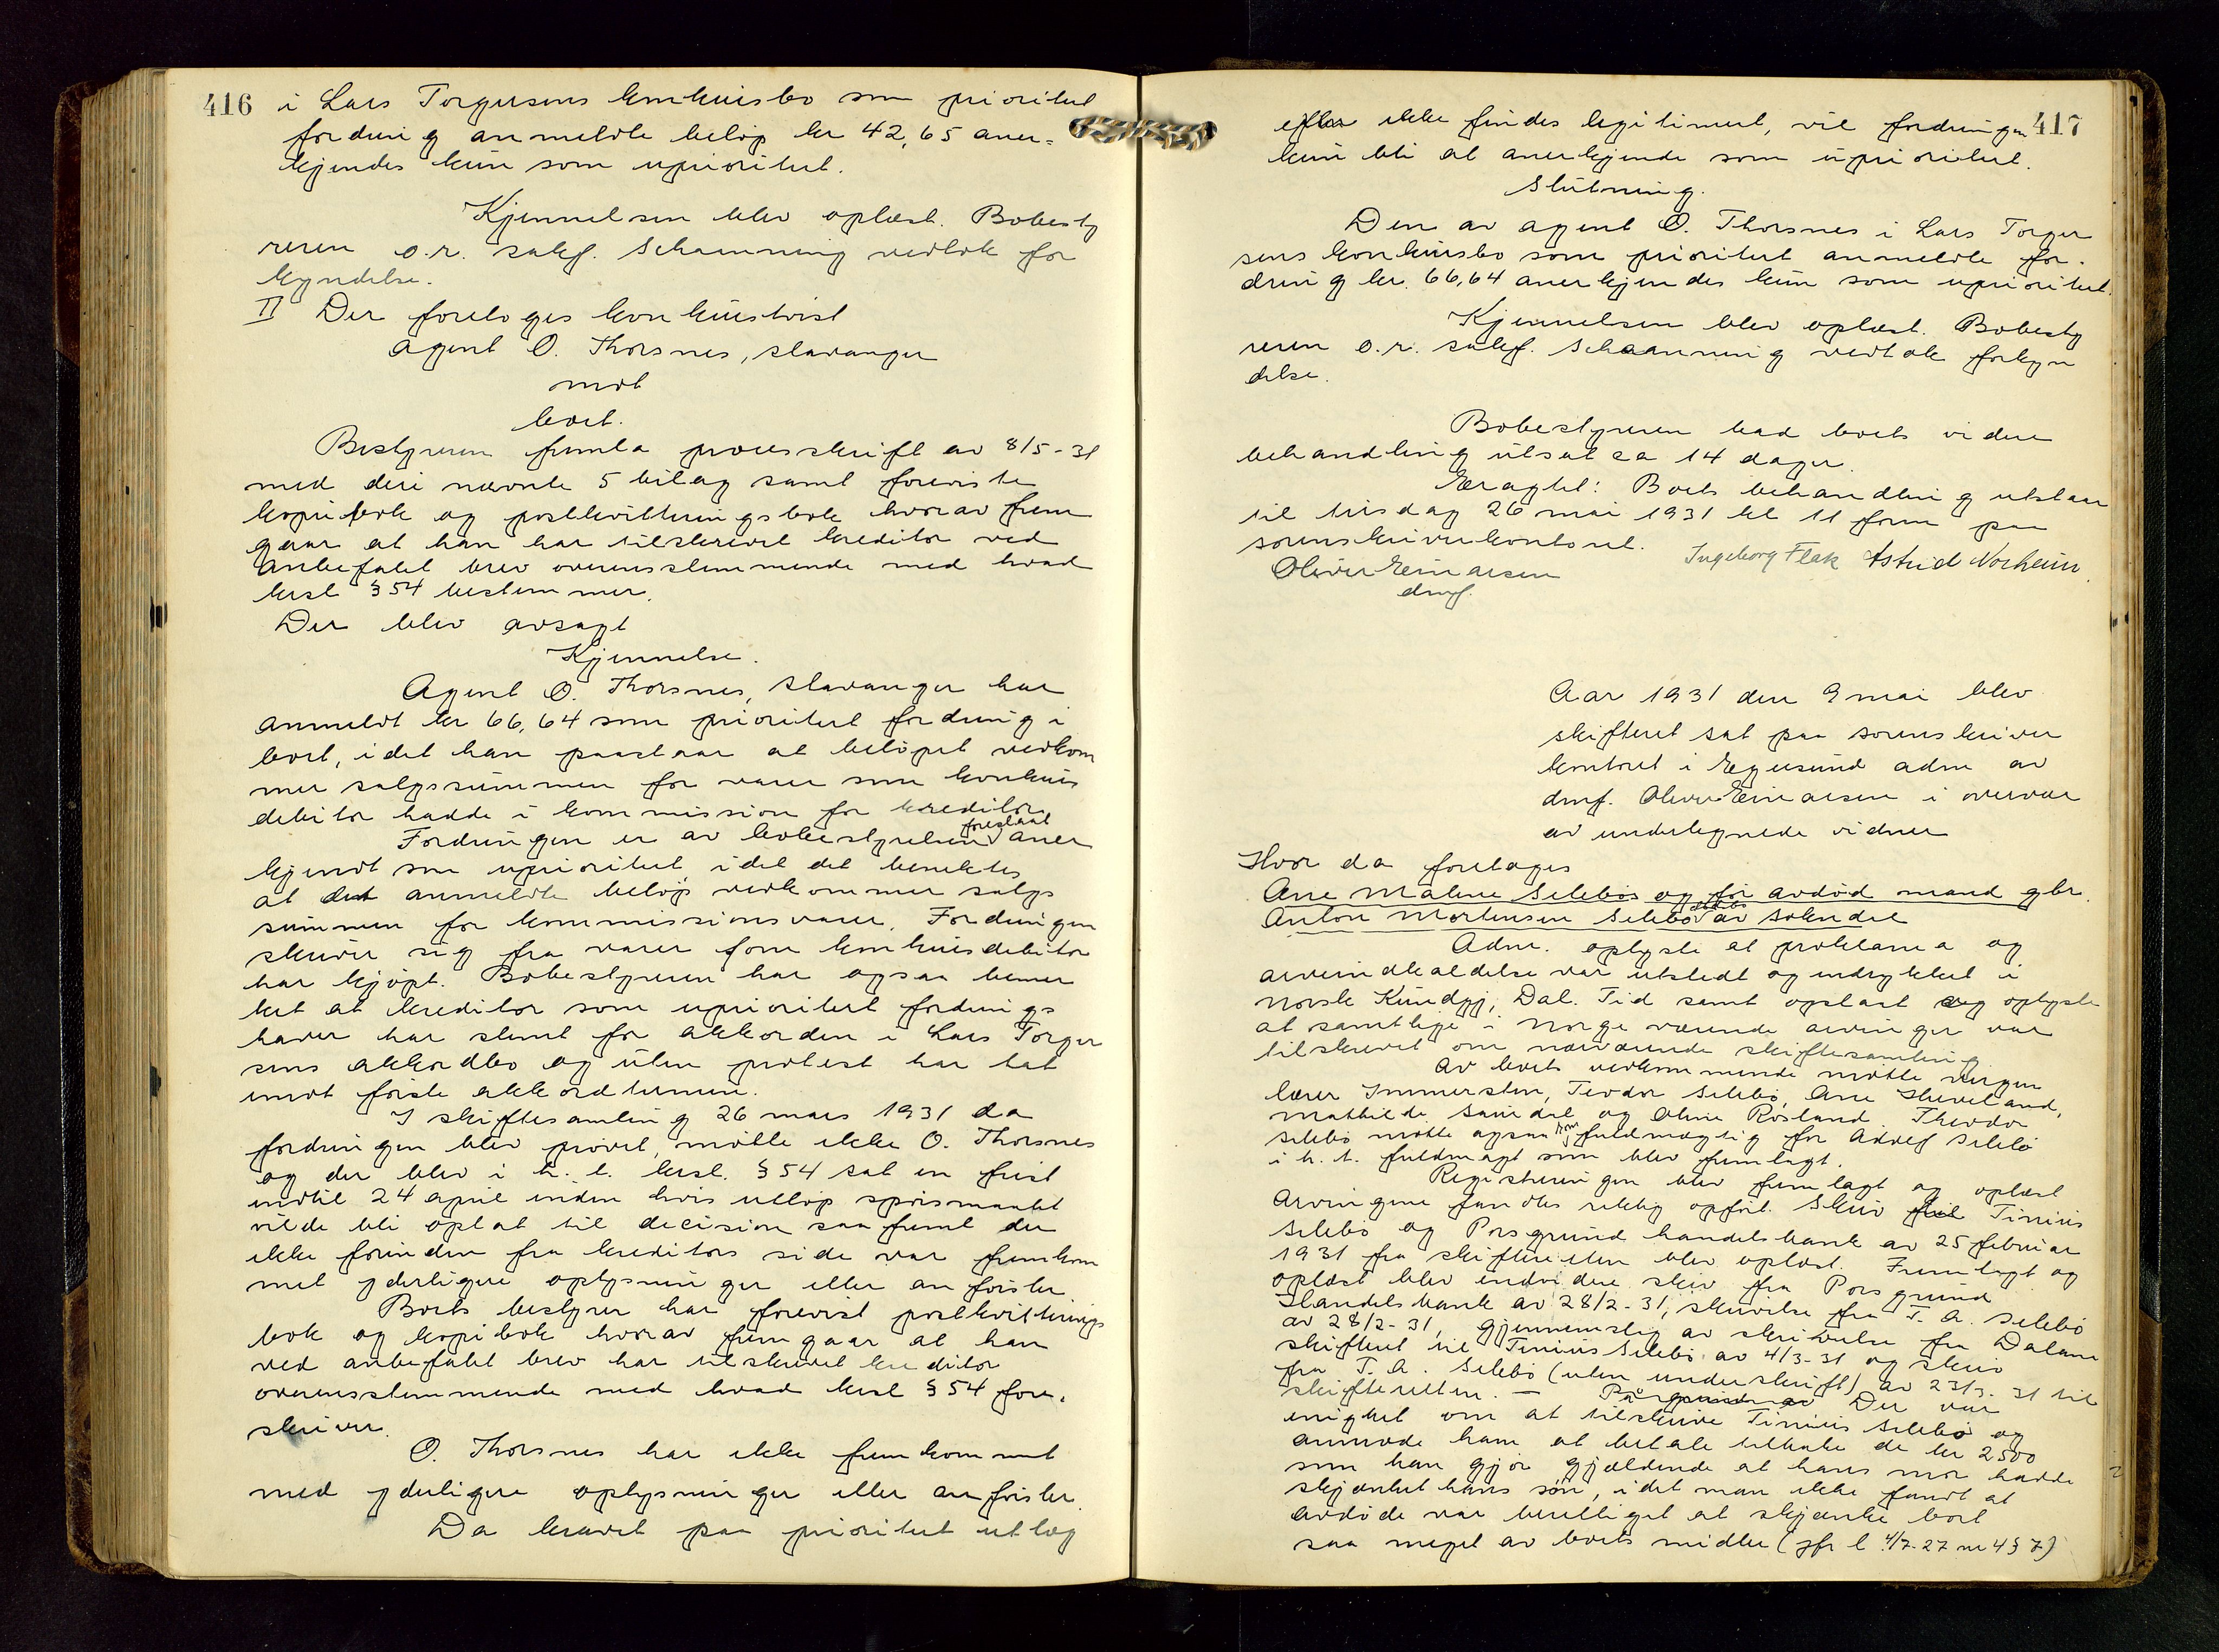 416
i Lars Torgersens konkursbo som prioritert
fordring anmeldte beløp kr 42,65 aner-
kjendes kun som uprioritert.
Kjennelsen blev oplæst. Bobesty
reren o.r. sakf. Schanning vedtok for
kyndelse.
II Der foretoges konkurstvist
Agent O. Thorsnes, Stavanger
mot
boet.
Bestyreren fremla prosesskrift av 8/5-31
med deri nævnte 5 bilag samt foreviste
kopibok og postkvitteringsbok hvorav frem
gaar at han har tilskrevet kreditor ved
anbefalet brev overensstemmende med hvad
krsl § 54 bestemmer.
Der blev avsagt
Kjennelse.
Agent O. Thorsnes, Stavanger har
anmeldt kr 66,64 som prioritert fordring i
boet, idet han paastaar at beløpet vedkom
mer salgssummen for varer som konkurs
debitor hadde i kommission for kreditor.
Fordringen er av bobestyreren foreslaat aner
kjendt som uprioritert, idet det benektes
at det anmeldte beløp vedkommer salgs
summen for kommissionsvarer. Fordringen
skriver sig fra varer som konkursdebitor
har kjøpt. Bobestyreren har ogsaa bemer
ket at kreditor som uprioritert fordrings
haver har stemt for akkorden i Lars Torger
sens akkordbo og uten protest har tat
imot første akkordtermin.
I skiftesamling 26 mars 1931 da
fordringen blev prøvet, møtte ikke O. Thorsnes
og der blev i h. t. krsl. § 54 sat en frist
indtil 24 april inden hvis utløp spørsmaalet
vilde bli optat til decision saafremt der
ikke forinden fra kreditors side var fremkom
met yderligere oplysninger eller anførsler.
Boets bestyrer har forevist postkvitterings
bok og kopibok hvorav fremgaar at han
ved anbefalet brev har tilskrevet kreditor
overensstemmende med hvad krsl § 54 fore-
skriver.
O. Thorsnes har ikke fremkommet
med yderligere oplysninger eller anførsler.
Da kravet paa prioritert utlæg
417
efter ikke findes legitimert, vil fordringen
kun bli at anerkjende som uprioritert.
Slutning.
Den av agent O. Thorsnes i Lars Torger
sens konkursbo som prioritert anmeldte for-
dring kr. 66,64 anerkjendes kun som uprioritert.
Kjennelsen blev oplæst. Bobesty
reren o.r. sakf. Schaanning vedtok forkyn
delse.
Bobestyreren bad boets videre
behandling utsat ca 14 dager.
Eragtet: Boets behandling utstaar
til tirsdag 26 mai 1931 kl 11 form paa
sorenskriverkontoret. Ingeborg Flek Astrid Norheim.
Oliver Einarsen
dmf.
Aar 1931 den 9 mai blev
skifteret sat paa sorenskriver
kontoret i Egersund adm av
dmf. Oliver Einarsen i overvær
av undertegnede vidner
Hvor da foretoges
Ane Maline Selebøs og før avdød mand gbr.
Anton Mortensen Selebø dødsbo av Sokndal
Adm. oplyste at proklama og
arveindkaldelse var utstedt og indrykket i
Norsk Kundgj, Dal. Tid samt opslaat og oplyste
at samtlige i Norge værende arvinger var
tilskrevet om nærværende skiftesamling
Av boets vedkommende møtte vergen
lærer Immerstein, Teodor Selebø, Ane Skeveland,
Mathilde Sandal og Oline Røsland. Theodor
Selebø møtte ogsaa som fuldmægtig for Adolf Selebø
i h. t. fuldmagt som blev fremlagt.
Registreringen blev fremlagt og oplæst
Arvingene fandtes riktig opført. Skriv til Tinius
Selebø og Porsgrund handelsbank av 25 februar
1931 fra skifteretten blev oplæst. Fremlagt og
oplæst blev endvidere skriv fra Porsgrund
Handelsbank av 28/2-31, skrivelse fra T. A. Selebø
av 28/2-31, gjennemslag av skrivelse fra Dalane
skifteret til Tinius Selebø av 4/3-31 og skriv
fra T. A. Selebø (uten underskrift) av 23/3-31 til
skifteretten. — På grund av Der var
enighet om at tilskrive Tinius Selebø og
anmode ham at betale tilbake de kr 2500
som han gjør gjældende at hans mor hadde
skjænket hans søn, idet man ikke fandt at
avdøde var berettiget at skjænke bort
saa meget av boets midler (jfr l 4/7-27 nr 4 § 7)